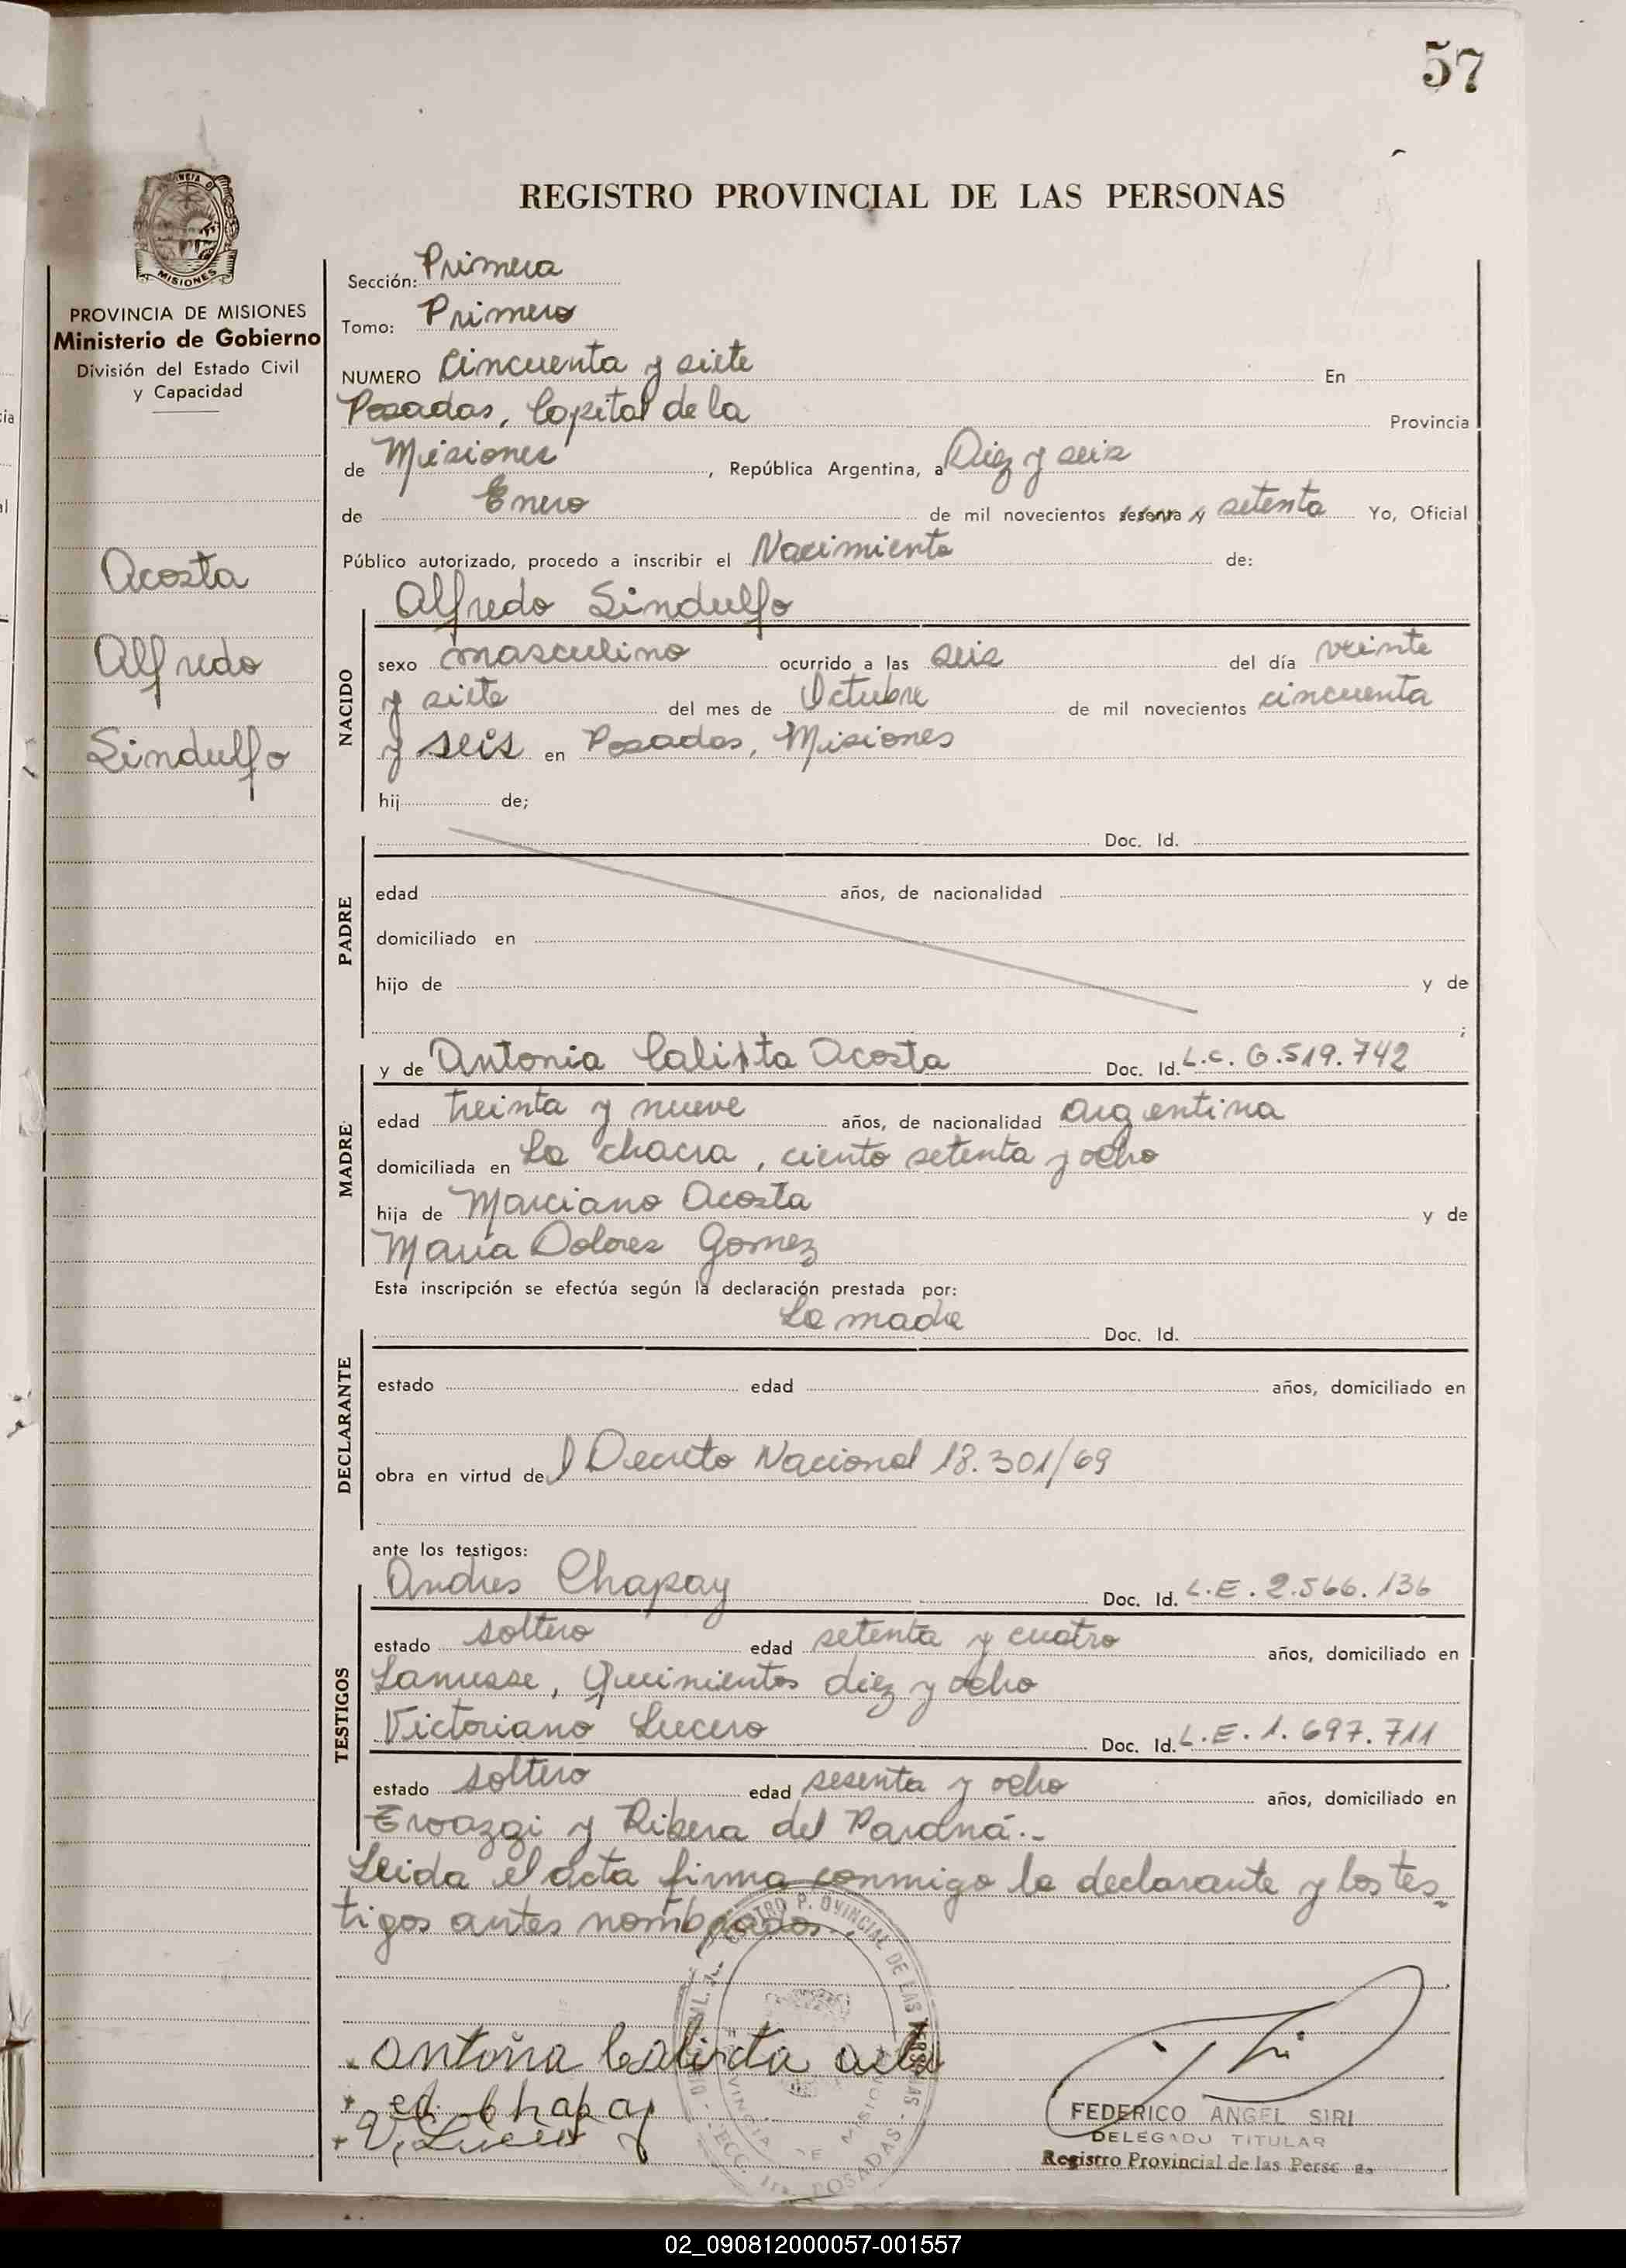 57
REGISTRO PROVINCIAL DE LAS PERSONAS
MISIONES
PROVINCIA DE MISIONES
Ministerio de Gobierno
División del Estado Civil
y Capacidad
Acosta
Alfredo
Sindulfo
Sección: Primera
Tomo: Primero
NUMERO Cincuenta y siete En
Posadas, Capital de la Provincia
de Misiones, República Argentina, a Diez y seis
de Enero de mil novecientos sesenta y setenta Yo, Oficial
Público autorizado, procedo a inscribir el Nacimiento de:
NACIDO
Alfredo Sindulfo
sexo masculino ocurrido a las seis del día veinte
y siete del mes de Octubre de mil novecientos cincuenta
y seis en Posadas, Misiones
hij de;
PADRE
Doc. Id.
edad años, de nacionalidad
domiciliado en
hijo de y de
;
MADRE
y de Antonia Calixta Acosta Doc. Id. L.C. 6.519.742
edad treinta y nueve años, de nacionalidad argentina
domiciliada en La chacra, ciento setenta y ocho
hija de Marciano Acosta y de
María Dolores Gomez
Esta inscripción se efectúa según la declaración prestada por:
DECLARANTE
La madre Doc. Id.
estado edad años, domiciliado en
obra en virtud del Decreto Nacional 18.301/69
ante los testigos:
TESTIGOS
Andres Chapay Doc. Id. L.E. 2.566.136
estado soltero edad setenta y cuatro años, domiciliado en
Lanusse, Quinientos diez y ocho
Victoriano Lucero Doc. Id. L.E. 1.697.711
estado soltero edad sesenta y ocho años, domiciliado en
y Ribera del Paraná.-
Leida el acta firma conmigo la declarante y los tes-
tigos antes nombrados.
Antoña Calixta
Chapay
V. Lucero
FEDERICO ANGEL SIRI
DELEGADO TITULAR
Registro Provincial de las Perso as
02_090812000057-001557